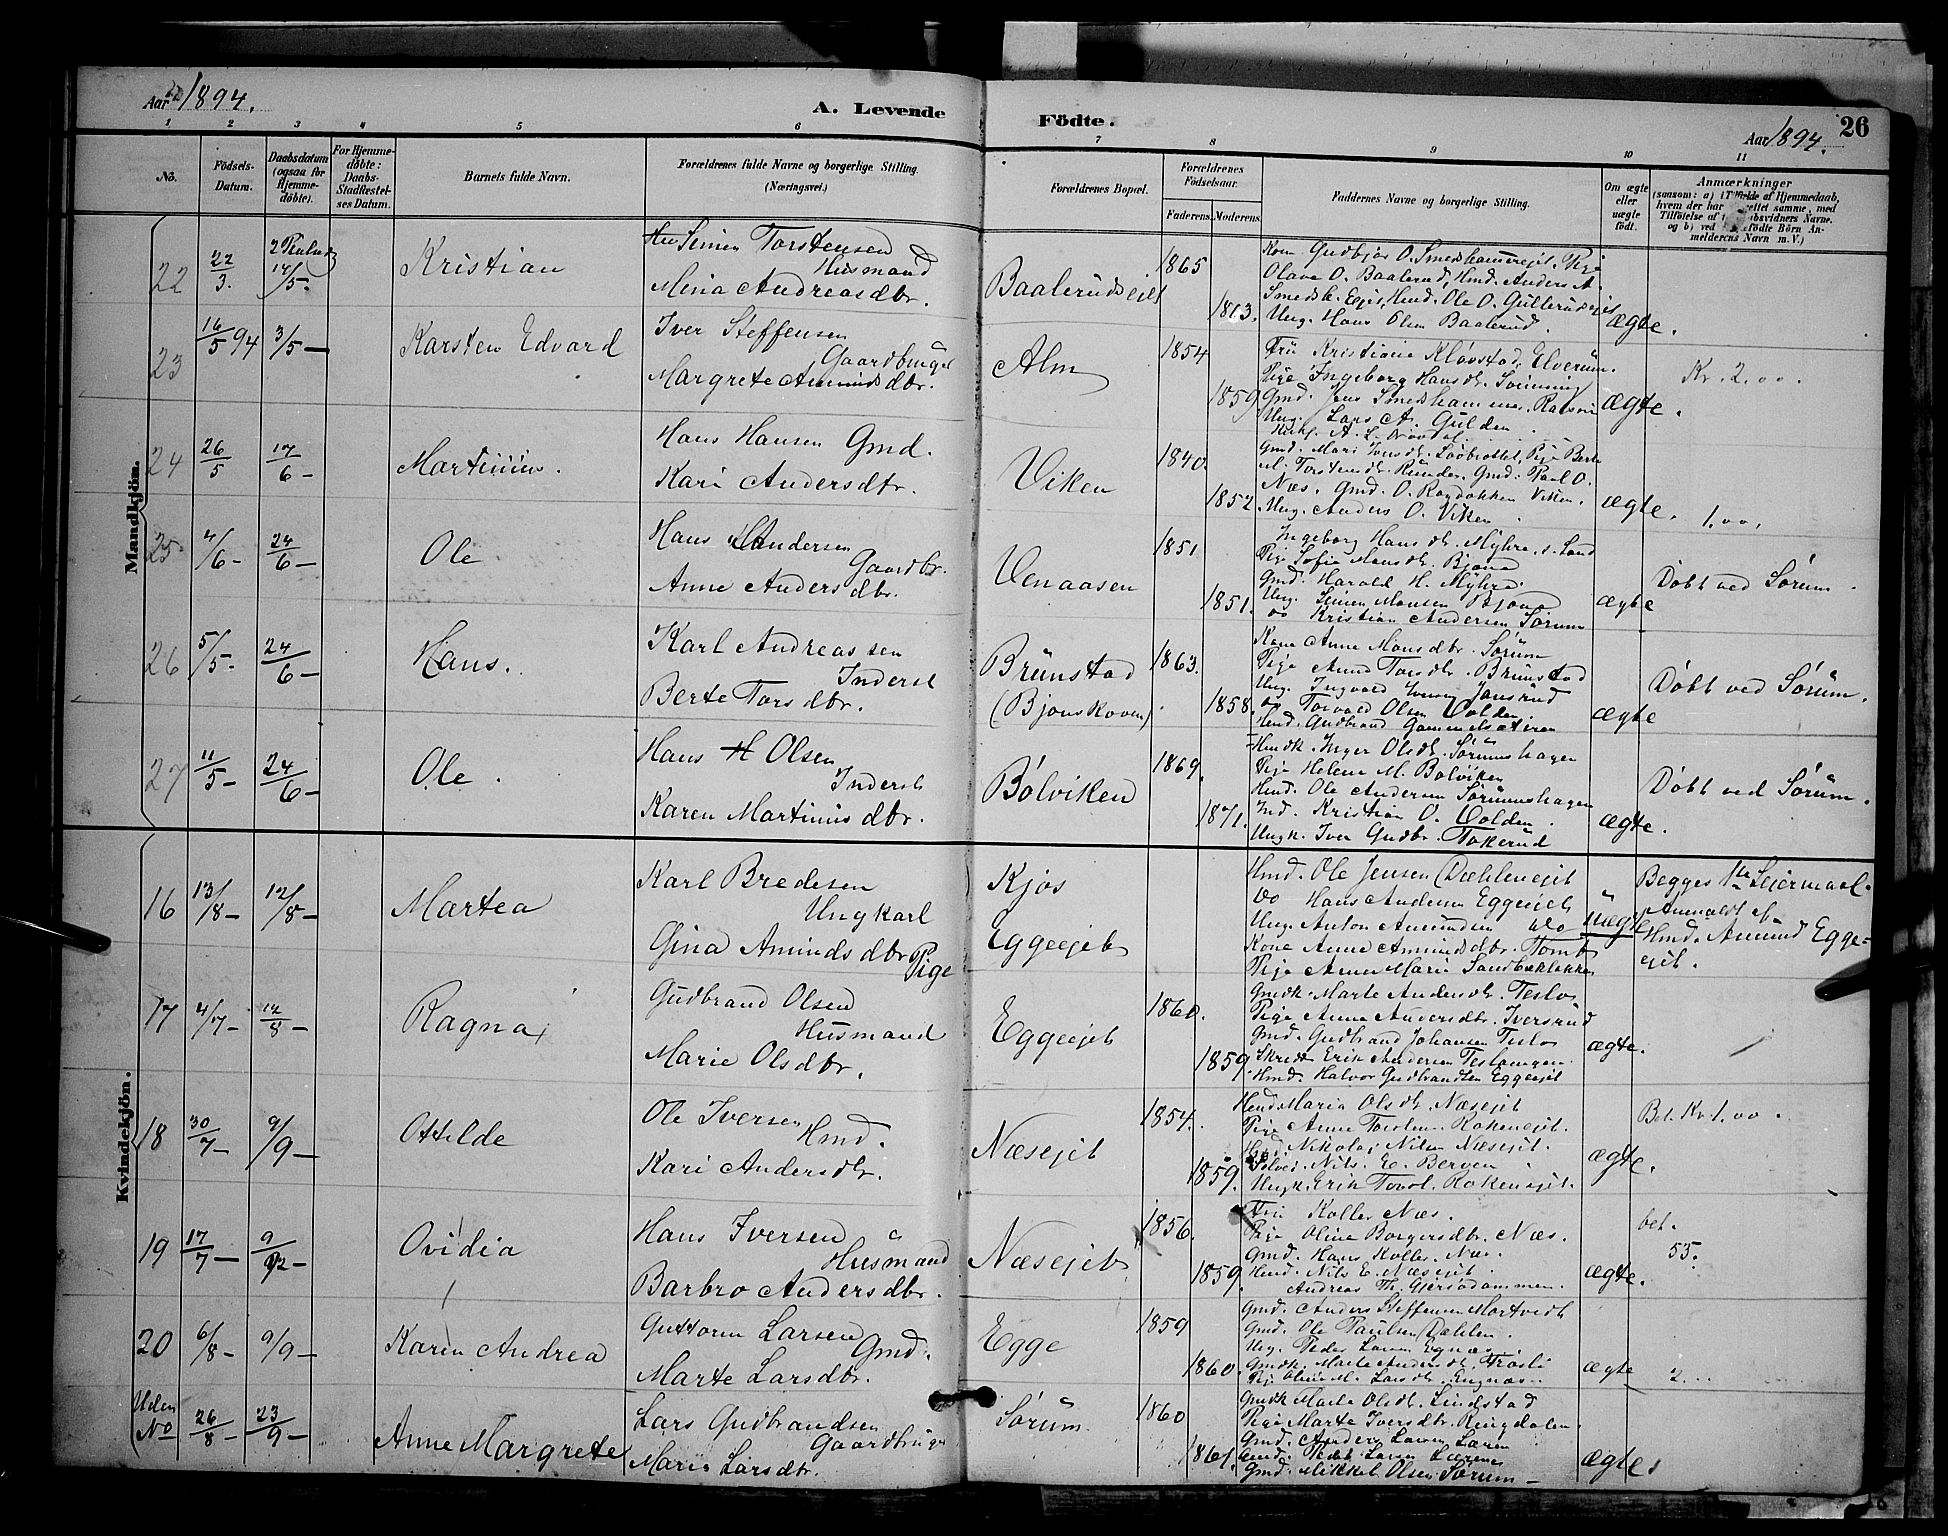 Aar 1894.
A. Levende
Födte.
Aar 1894.
26
1 2 3 4 5 6 7 8 9 10 11
No.
Födsels-
Datum.
Daabsdatum
(ogsaa for
Hjemme-
döbte).
For Hjemme-
döbte:
Daabs-
Stadfæstel-
ses Datum.
Barnets fulde Navn.
Forældrenes fulde Navne og borgerlige Stilling.
(Næringsvei.)
Forældrenes Bopæl.
Forældrenes
Födselsaar.
Faderens. Moderens.
Faddernes Navne og borgerlige Stilling.
Om ægte
eller
uægte
födt.
Anmærkninger
(saasom: a) i Tilfælde af Hjemmedaab,
hvem der har
samme, med
Tilföielse af
Navne.
og b) ved
födte Börn An-
melderens Navn m. V.)
Mandkjön.
22
22/3.
14/5.
Kristian
Simen Torstensen
Husmand
Mina Andreasdtr.
Baalerudseiet
1865
1863.
Olava O. Baalerud, Hmd. Anders A.
Ole O. Gullerudseiet
Ung. Hans Olsen Baalerud.
ægte.
23
16/5 94
3/5 —
Karsten Edvard
Iver Steffensen
Gaardbruger
Margrete Amundsdtr.
Alm
1854
1859
Fru Kristiane Klövstad, Elverum.
Pige Ingeborg Hansdt.
Gmd. Jens Smedshammer
Ung. Lars A. Gulden
ægte.
Kr. 2.00.
24
26/5
17/6 —
Martinius.
Hans Hansen Gmd.
Kari Andersdtr.
Viken
1840.
1852.
Torstensdt. Runden. Gmd. Paul O.
Næs. Gmd. O. Randokken Viken.
Ung. Anders O. Viken.
ægte.
1.00.
25
4/6 —
24/6 —
Ole
Hans Andersen
Gaardbr.
Anne Andersdtr.
Venaasen
1851.
1851.
Ingeborg Hansdt. Myhre
Pige Sofie Monsdt. Bjone
Gmd. Harald H. Myhre.
Ung. Simen Monsen Bjone
do Kristian Andersen Sörum
ægte
Döbt ved Sörum.
26
5/5.
24/6 —
Hans.
Karl Andreassen
Inderst
Berte Torsdtr.
Brünstad
(Bjonskoven)
1863.
1858.
Kone Anne Monsdtr. Sörum
Pige Anne Torsdt. Brünstad
Ung. Ingvald Iversen Jonsrud
do Torvald Olsen Volden
Hmd. Gudbrand
ægte
Döbt ved Sörum.
27
11/5 —
24/6 —
Ole.
Hans Olsen
Inderst
Karen Martiniusdtr.
Bölviken
1869.
1871.
Hmdk. Inger Olsdt. Sörumshagen
Pige Helene M. Bölviken
Hmd. Ole Andersen Sörumshagen
Ind. Kristian O. Volden.
Ungk. Iver Gudbr. Tokerud
ægte.
Döbt ved Sörum.
Kvindekjön.
16
13/8 —
12/8 —
Martea
Karl Bredesen
Ungkarl
Gina Amundsdtr Pige
Kjös
Eggeejet
Hmd. Ole Jensen Dæhleneiet
do Hans Andersen Eggeejet
Ung. Anton Amundsen do
Kone Anne Amundsdtr. Tomt
Pige Anne Marie Sandbækløkken
uægte
Begges 1ste Leiermaal.
Anmeldt af
Hmd. Amund Egge-
ejet.
17
4/7 —
12/8 —
Ragna
Gudbrand Olsen
Husmand
Marie Olsdtr.
Eggeejet
1860.
1859.
Gmdk. Marte Andersdt. Teslo
Pige Anne Andersdtr. Iversrud
Gmd. Gudbrand Johansen Teslo
Skredr. Erik Andersen Teslo
Hmd. Halvor Gudbrandsen Eggeejet
ægte.
18
30/7 —
9/9 —
Ottilde
Ole Iversen
Hmd.
Kari Andersdtr.
Næseiet
1854.
1859.
Hmd. Maria Olsdt. Næsejet
Pige Anne Torsten. Rokeneiet.
Nikolaj Nilsen Næseiet.
Nils E. Berven
Ungk. Erik Torst. Rokeneiet.
ægte.
Bet. Kr. 1.00.
19
17/7 —
9/12 —
Ovidia
Hans Iversen
Husmand
Barbro Andersdtr.
Næseiet
1856.
1859.
Fru Koller Næs.
Pige Olina Borgersdtr. Næs.
Gmd. Hans Koller. Næs.
Hmd. Nils E. Næseiet.
Andreas Th. Gjersödammen.
ægte.
bet.
55.
20
6/8 —
9/9 —
Karen Andrea
Guttorm Larsen
Gmd.
Marte Larsdtr.
Egge
1859
1860.
Gmd. Anders Steffensen Mortvedt
Gmd. Ole Paulsen Dæhlen.
Ung. Peder Larsen Egnæs.
Gmdk. Marte Andersdt. Frøsli
ægte
2...
Uden
No
26/8 —
23/9 —
Anne Margrete
Lars Gudbrandsen
Gaardbruger
Marie Larsdtr.
Sörum
1860
1861.
Gmdk Marte Olsdt. Lindstad
Pige Marte Iversdtr. Ringdalen.
Gmd. Anders Larsen
Gmd. Mikkel Olsen Sörum —
ægte.